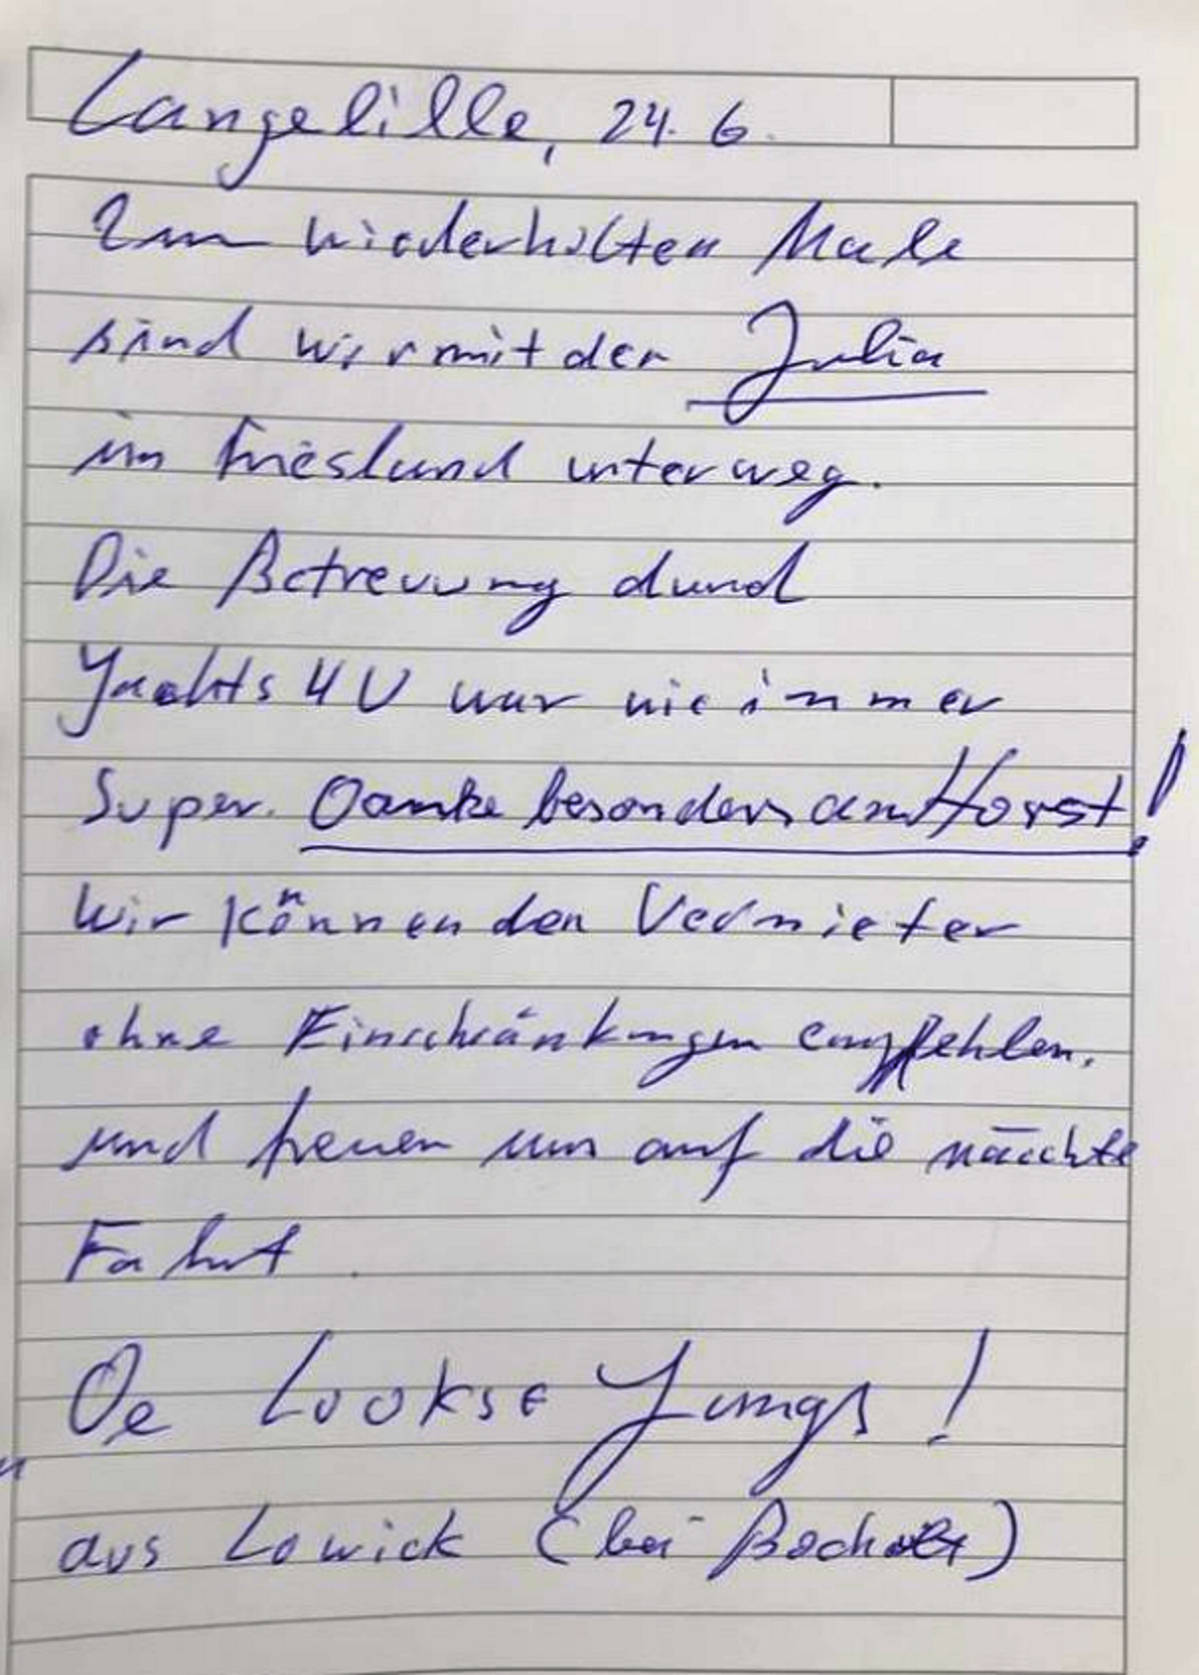 Langelille, 24. 6.
Zum wiederholten Male
sind wir mit der Julia
im Friesland unterweg.
Die Betreuung durch
Yachts 4 U war wie immer
Super. Danke besonders an Horst!
Wir können den Vermieter
ohne Einschränkungen empfehlen.
und freuen uns auf die nächste
Fahrt.
De Lookse Jungs!
aus Lowick (bei Bocholt)